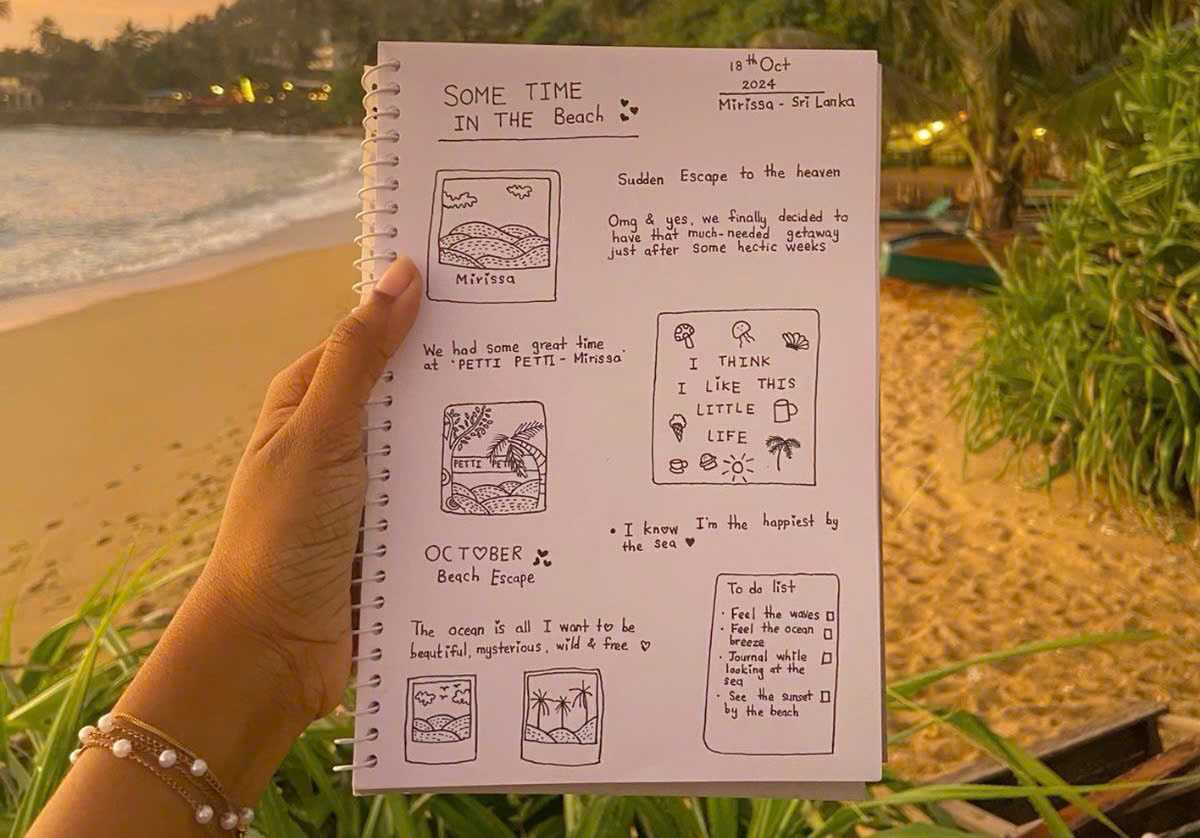 SOME TIME
IN THE Beach
18th Oct
2024
Mirissa - Sri Lanka
Mirissa
Sudden Escape to the heaven
Omg & yes, we finally decided to
have that much-needed getaway
just after some hectic weeks
We had some great time
at 'PETTI PETTI - Mirissa'
I THINK
I LIKE THIS
LITTLE
LIFE
PETTI PETTI
• I know I'm the happiest by
the sea ♥
OCT♡BER
Beach Escape
The ocean is all I want to be
beautiful, mysterious, wild & free ♡
To do list
· Feel the waves □
· Feel the ocean □
breeze
· Journal while □
looking at the
sea
· See the sunset □
by the beach